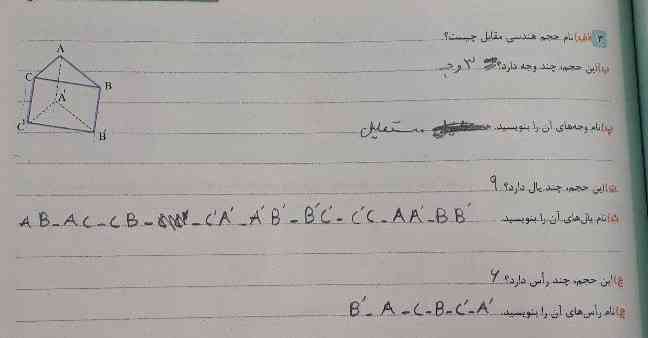 ۳ الف) نام حجم هندسی مقابل چیست؟
ب) این حجم، چند وجه دارد؟ ۳ وجه
پ) نام وجه‌های آن را بنویسید. مستطیل
ت) این حجم، چند یال دارد؟ ۹
ث) نام یال‌های آن را بنویسید. AB - AC - CB - C'A' - A'B' - B'C' - C'C - AA' - BB'
ج) این حجم، چند رأس دارد؟ ۶
چ) نام رأس‌های آن را بنویسید. B' - A - C - B - C' - A'
A
C
B
A'
C'
B'